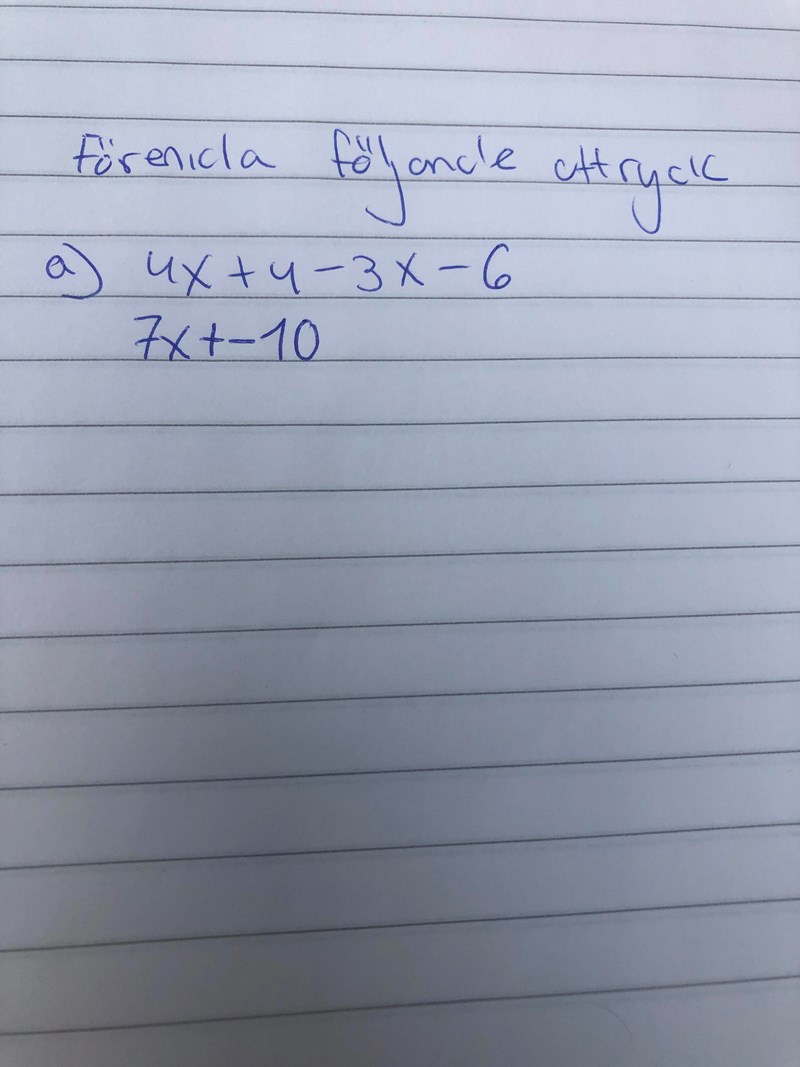 Förenkla följande uttryck
a) 4x+4-3x-6
7x+-10